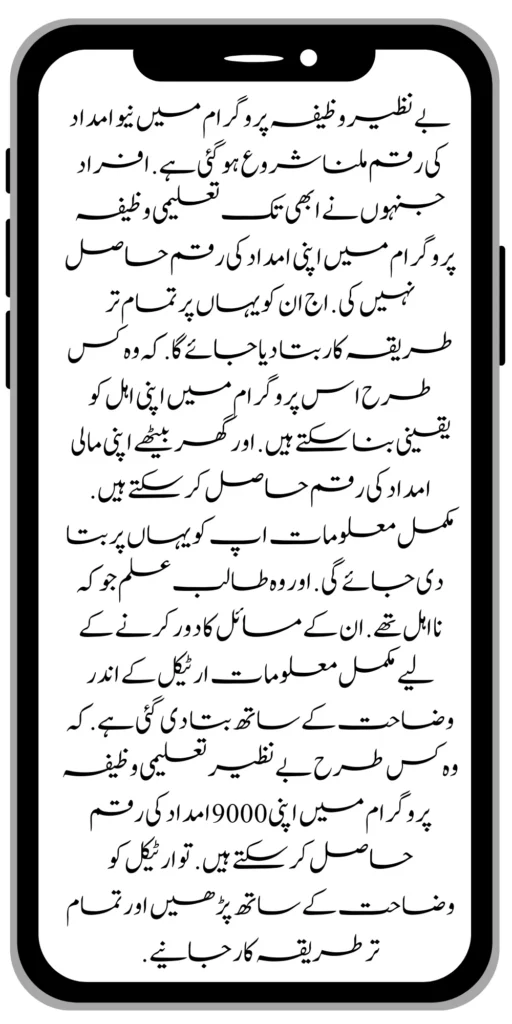 بے نظیر وظیفہ پروگرام میں نیو امداد
کی رقم ملنا شروع ہو گئی ہے. افراد
جنہوں نے ابھی تک تعلیمی وظیفہ
پروگرام میں اپنی امداد کی رقم حاصل
نہیں کی. اج ان کو یہاں پر تمام تر
طریقہ کار بتا دیا جائے گا. کہ وہ کس
طرح اس پروگرام میں اپنی اہل کو
یقینی بنا سکتے ہیں. اور گھر بیٹھے اپنی مالی
امداد کی رقم حاصل کر سکتے ہیں.
مکمل معلومات اپ کو یہاں پر بتا
دی جائے گی. اور وہ طالب علم جو کہ
نااہل تھے. ان کے مسائل کا دور کرنے کے
لیے مکمل معلومات ارٹیکل کے اندر
وضاحت کے ساتھ بتا دی گئی ہے. کہ
وہ کس طرح بے نظیر تعلیمی وظیفہ
پروگرام میں اپنی 9000 امداد کی رقم
حاصل کر سکتے ہیں. تو ارٹیکل کو
وضاحت کے ساتھ پڑھیں اور تمام
تر طریقہ کار جانیے.